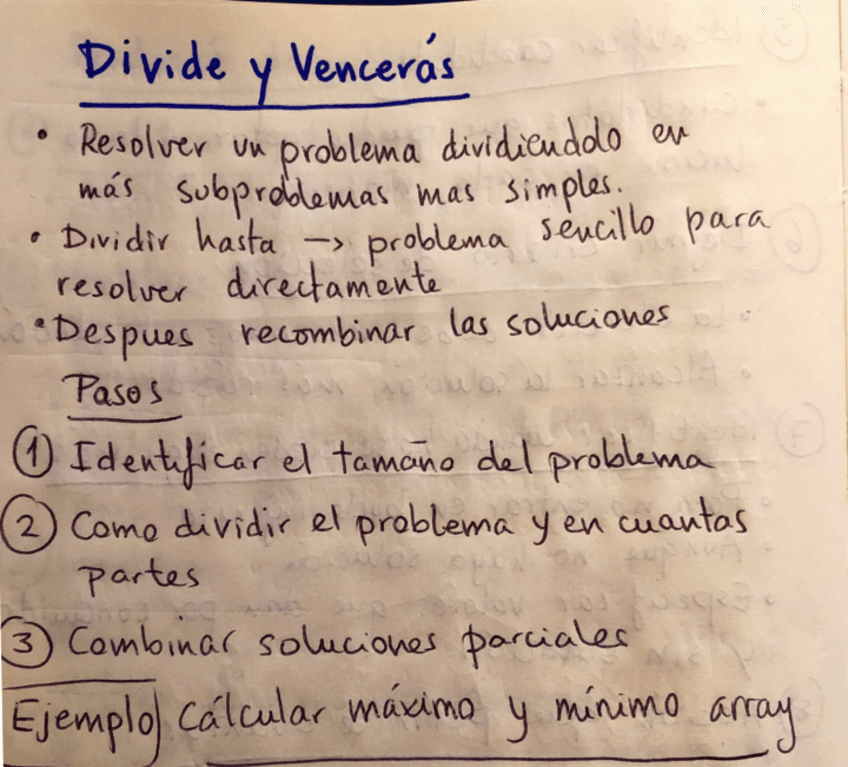 Divide y Vencerás
• Resolver un problema dividiendolo en
más subproblemas mas simples.
• Dividir hasta -> problema sencillo para
resolver directamente
• Despues recombinar las soluciones
Pasos
① Identificar el tamaño del problema
② Como dividir el problema y en cuantas
partes
③ Combinar soluciones parciales
Ejemplo Cálcular máximo y mínimo array